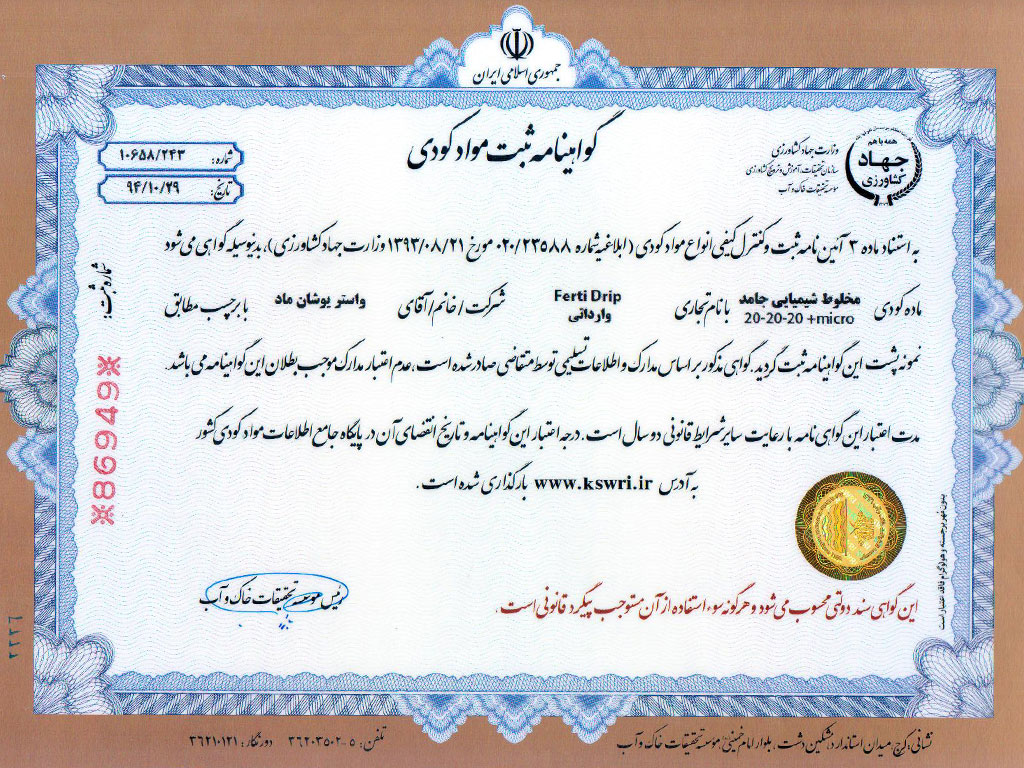 جمهوری اسلامی ایران
گواهینامه ثبت مواد کودی
همه با هم
جهاد
کشاورزی
وزارت جهاد کشاورزی
سازمان تحقیقات، آموزش و ترویج کشاورزی
موسسه تحقیقات خاک و آب
شماره: ۱۰۶۵۸/۲۴۳
تاریخ: ۹۴/۱۰/۲۹
به استناد ماده ۳ آئین نامه ثبت و کنترل کیفی انواع مواد کودی (ابلاغیه شماره ۰۲۰/۲۳۵۸۸ مورخ ۱۳۹۳/۰۸/۲۱ وزارت جهاد کشاورزی)، بدینوسیله گواهی می شود
ماده کودی مخلوط شیمیایی جامد 20-20-20 +micro با نام تجاری Ferti Drip وارداتی شرکت/خانم/آقای واستر پوشان ماد با برچسب مطابق
نمونه پشت این گواهینامه ثبت گردید. گواهی مذکور بر اساس مدارک و اطلاعات تسلیمی توسط متقاضی صادر شده است، عدم اعتبار مدارک موجب بطلان این گواهینامه می باشد.
مدت اعتبار این گواهی نامه با رعایت سایر شرایط قانونی دو سال است. درجه اعتبار این گواهینامه و تاریخ انقضای آن در پایگاه جامع اطلاعات مواد کودی کشور
به آدرس www.kswri.ir بارگذاری شده است.
شماره ثبت:
※86949※
بدون مهر برجسته و هولوگرام فاقد اعتبار است
رئیس موسسه تحقیقات خاک و آب
این گواهی سند دولتی محسوب می شود و هرگونه سوء استفاده از آن مستوجب پیگرد قانونی است.
۲۲۲۶
نشانی: کرج، میدان استاندارد، مشکین دشت، بلوار امام خمینی، موسسه تحقیقات خاک و آب
تلفن: ۵-۳۶۲۰۳۵۰۲ دورنگار: ۳۶۲۱۰۱۲۱